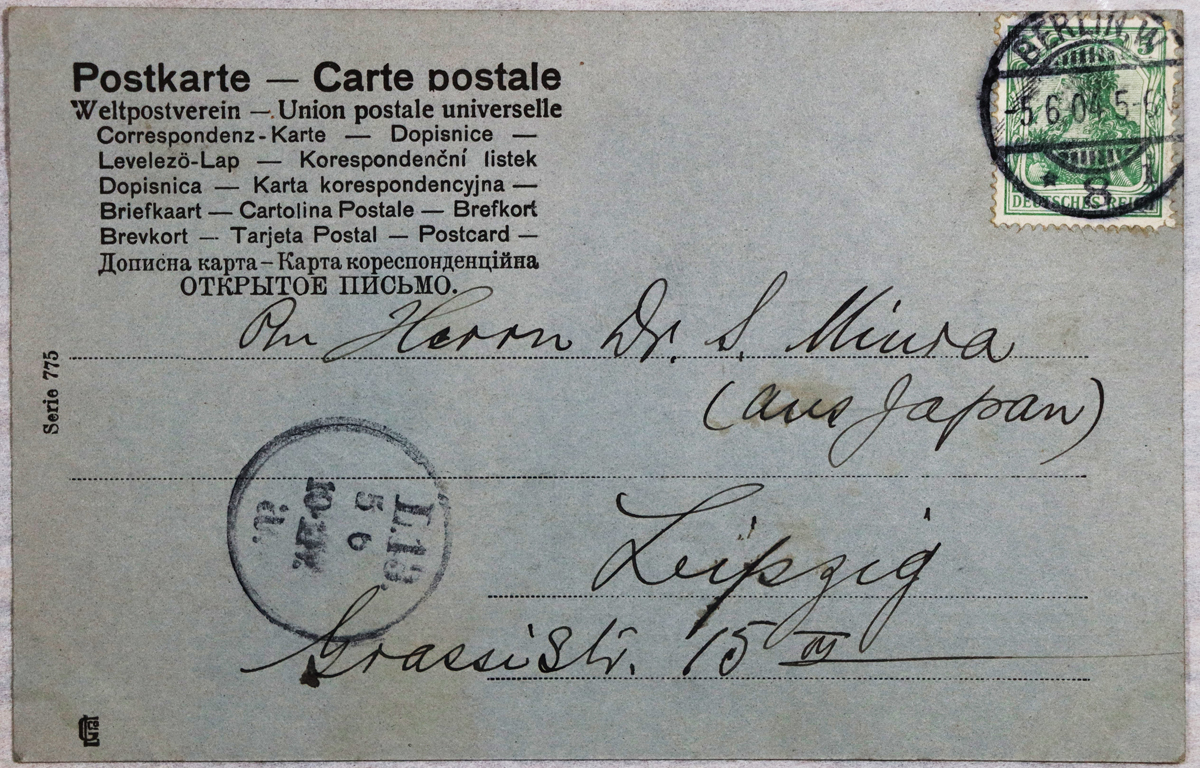 Postkarte — Carte postale
Weltpostverein — Union postale universelle
Correspondenz-Karte — Dopisnice —
Levelező-Lap — Korespondenční listek
Dopisnica — Karta korespondencyjna —
Briefkaart — Cartolina Postale — Brefkort
Brevkort — Tarjeta Postal — Postcard —
Дописна карта – Карта кореспонденційна
ОТКРЫТОЕ ПИСЬМО.
BERLIN, W
-5.6.04. 5-6
* 8
DEUTSCHES REICH
An Herrn Dr. S. Miura
(aus Japan)
Serie 775
L.13.
5 6
Leipzig
Grassistr. 15 III